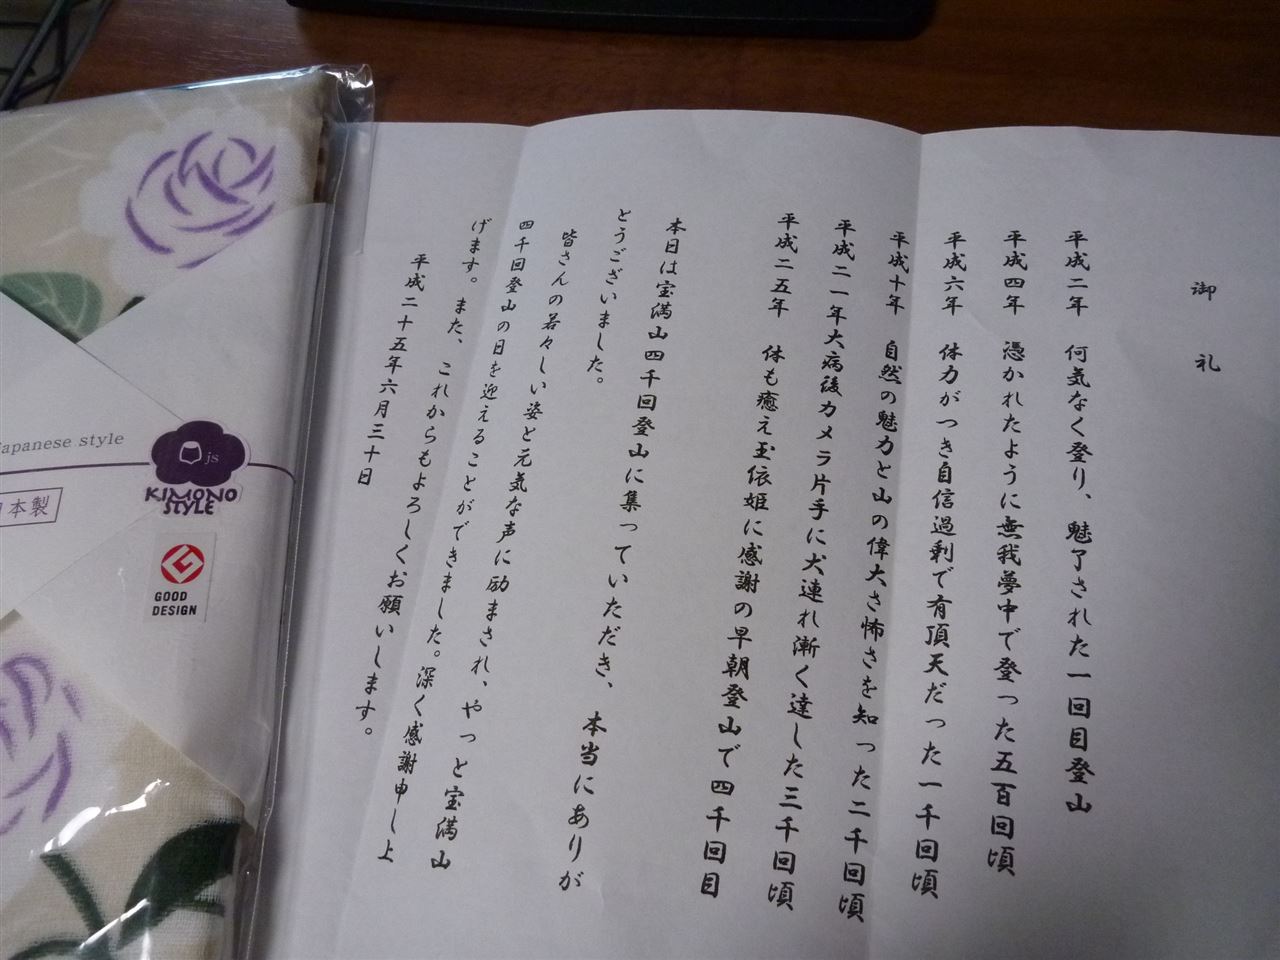 御礼
平成二年 何気なく登り、魅了された一回目登山
平成四年 憑かれたように無我夢中で登った五百回頃
平成六年 体力がつき自信過剰で有頂天だった一千回頃
平成十年 自然の魅力と山の偉大さ怖さを知った二千回頃
平成二一年大病後カメラ片手に犬連れ漸く達した三千回頃
平成二五年 体も癒え玉依姫に感謝の早朝登山で四千回目
本日は宝満山四千回登山に集っていただき、本当にありが
とうございました。
皆さんの若々しい姿と元気な声に励まされ、やっと宝満山
四千回登山の日を迎えることができました。深く感謝申し上
げます。また、これからもよろしくお願いします。
平成二十五年六月三十日
Japanese style
js
KIMONO
STYLE
日本製
GOOD
DESIGN